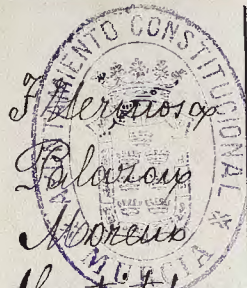 AYUNTAMIENTO CONSTITUCIONAL
MURCIA
Hermosa
Palazon
Moreno